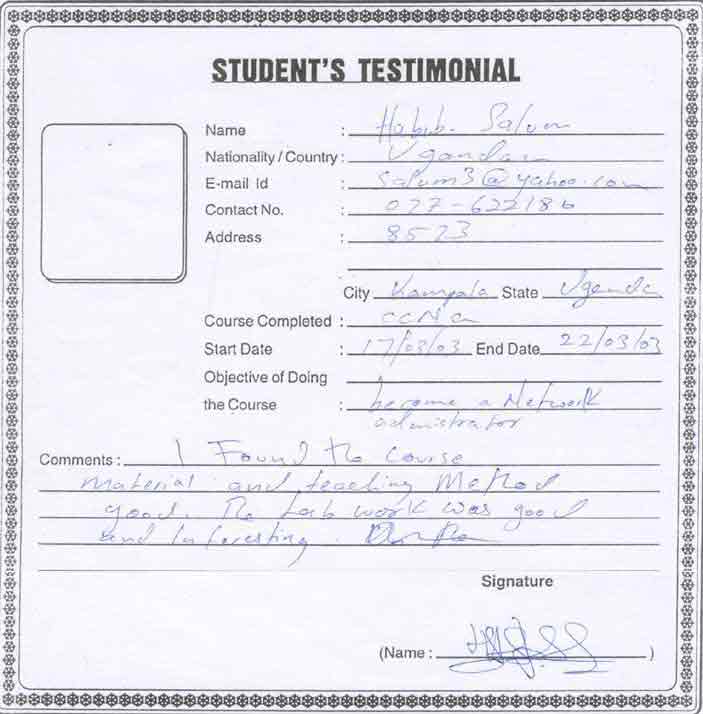 STUDENT'S TESTIMONIAL
Name : Habib. Salum
Nationality / Country : Ugandan
E-mail Id : Salum3@yahoo.com
Contact No. : 077-622186
Address : 8573
City Kampala State Uganda
Course Completed : CCNA
Start Date : 17/03/03 End Date 22/03/03
Objective of Doing
the Course : become a Network
administrator
Comments : I Found the Course
material and teaching Method
good. The Lab work was good
and Interesting.
Signature
(Name : )